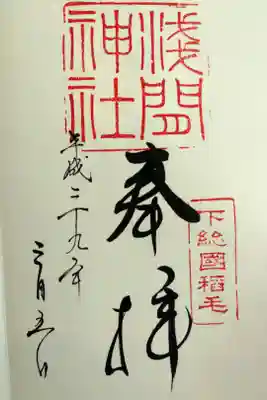 下総國稲毛
奉拝
浅間神社
平成二十九年
三月五日